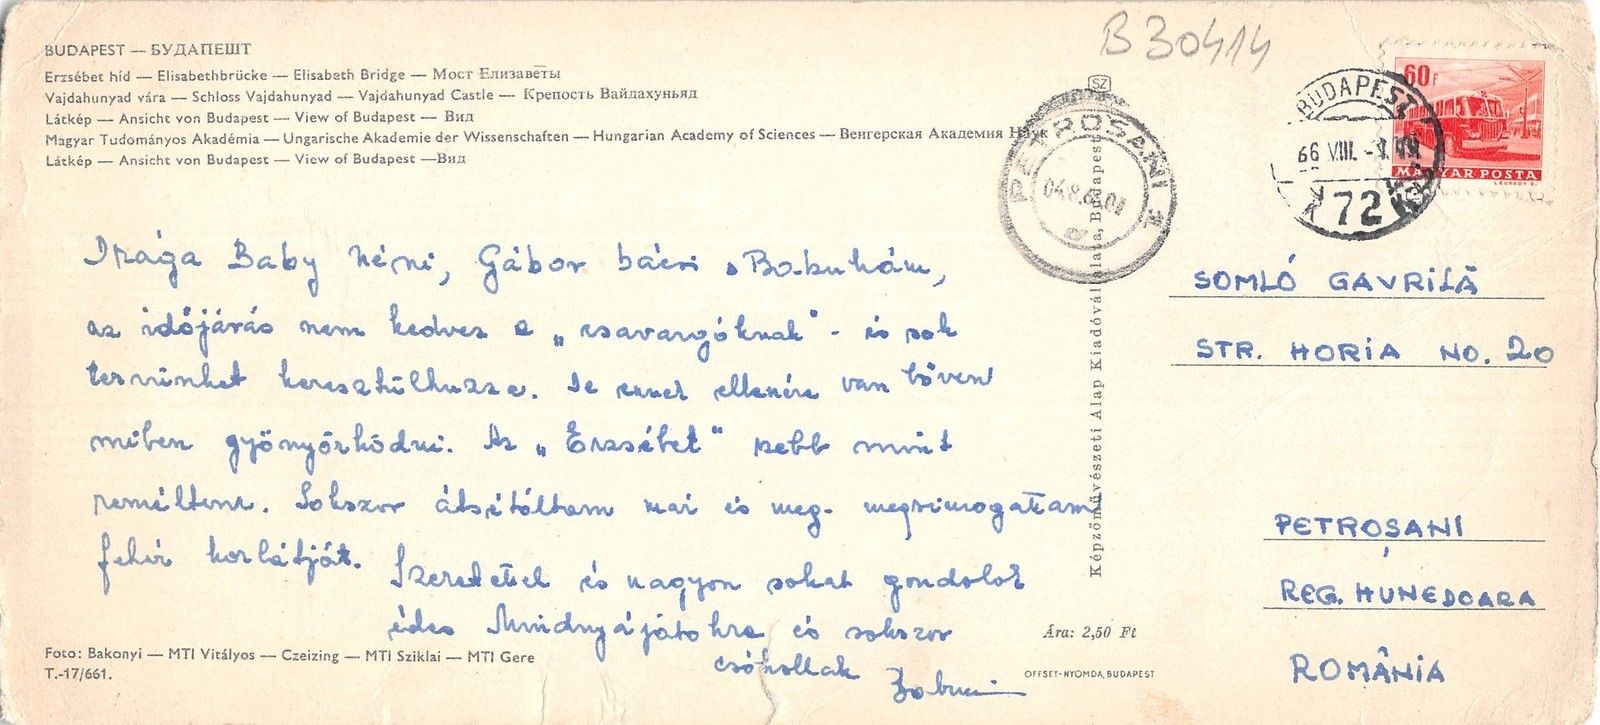 B30414
BUDAPEST — БУДАПЕШТ
Erzsébet híd — Elisabethbrücke — Elisabeth Bridge — Мост Елизаветы
Vajdahunyad vára — Schloss Vajdahunyad — Vajdahunyad Castle — Крепость Вайдахуньяд
Látkép — Ansicht von Budapest — View of Budapest — Вид
Magyar Tudományos Akadémia — Ungarische Akademie der Wissenschaften — Hungarian Academy of Sciences — Венгерская Академия Наук
Látkép — Ansicht von Budapest — View of Budapest —Вид
SZ
PETROSANI 1
BUDAPEST
66 VIII.
72
60f
MAGYAR POSTA
Drága Baby Néni, Gábor bácsi s
az időjárás nem kedvez a „csavargóknak" - és sok
tervünket keresztülhuzza. De ennek ellenére van bőven
miben gyönyörködni. Az „Erzsébet" szebb mint
reméltem. Sokszor átsétáltam már és meg- megsimogattam
fehér korlátját.
Szeretettel és nagyon sokat gondolok
édes Mindnyájatokra és sokszor
csókollak
SOMLÓ GAVRILĂ
STR. HORIA NO. 20
PETROȘANI
REG. HUNEDOARA
ROMÂNIA
Képzőművészeti Alap Kiadóvállalata, Budapest
Ára: 2,50 Ft
Foto: Bakonyi — MTI Vitályos — Czeizing — MTI Sziklai — MTI Gere
T.-17/661.
OFFSET-NYOMDA, BUDAPEST